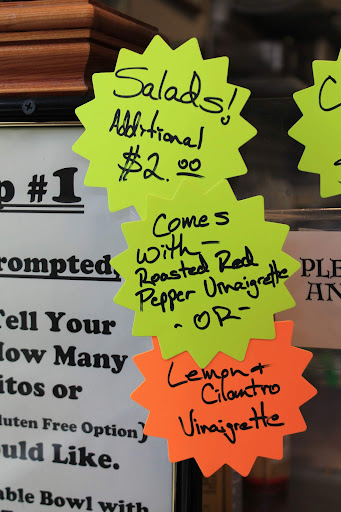 Salads!
Additional
$2.00
Comes
With—
Roasted Red
Pepper Vinaigrette
- OR -
Lemon +
Cilantro
Vinaigrette
p #1
rompted,
Tell Your
How Many
itos or
luten Free Option)
uld Like.
able Bowl with
PLE
AN